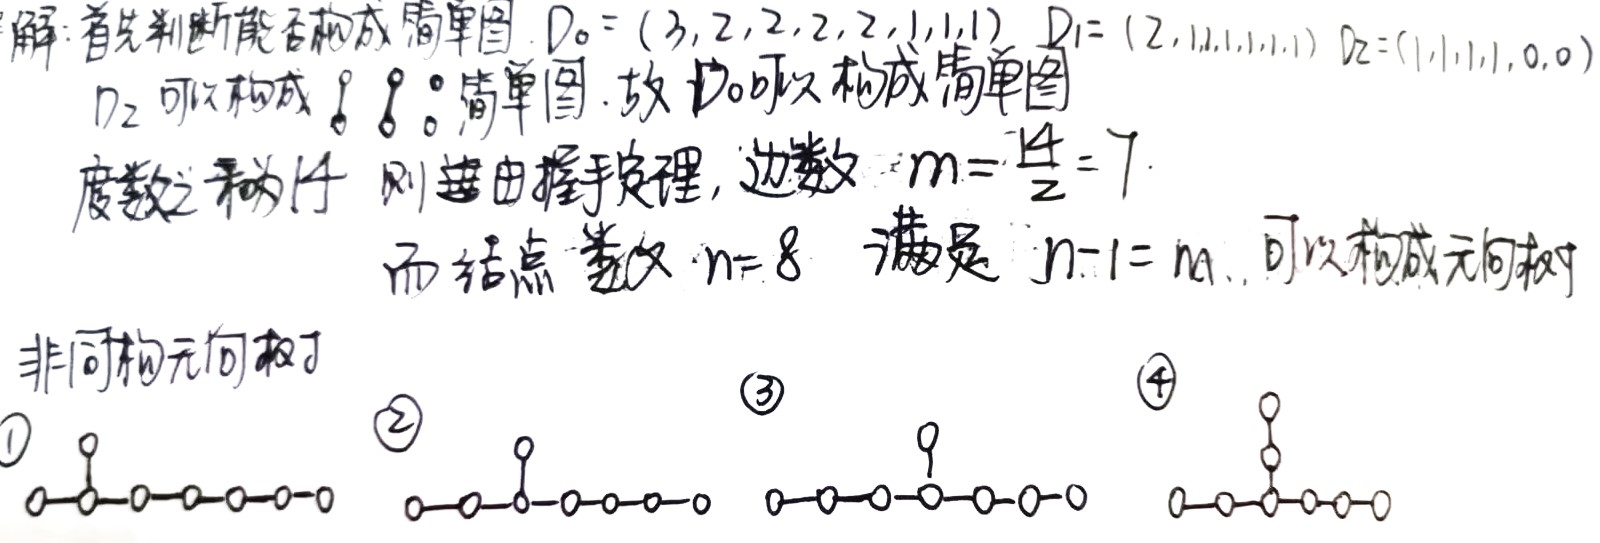 解:首先判断能否构成简单图. D₀=(3,2,2,2,2,1,1,1) D₁=(2,1,1,1,1,1,1) D₂=(1,1,1,1,0,0)
D₂可以构成 简单图.故D₀可以构成简单图
度数之和为14 则 由握手定理,边数 m=14/2=7.
而结点数 n=8 满足 n-1=m. 可以构成无向树
非同构无向树
① ② ③ ④